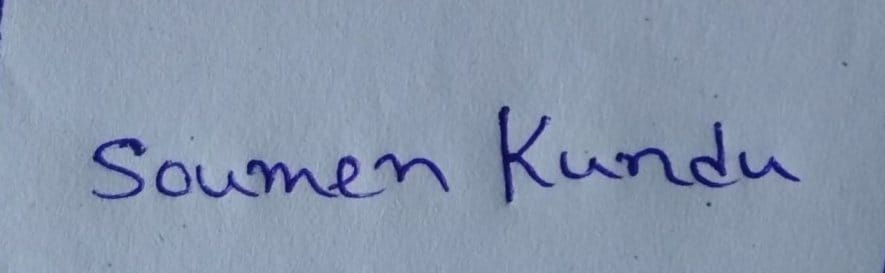 Soumen Kundu